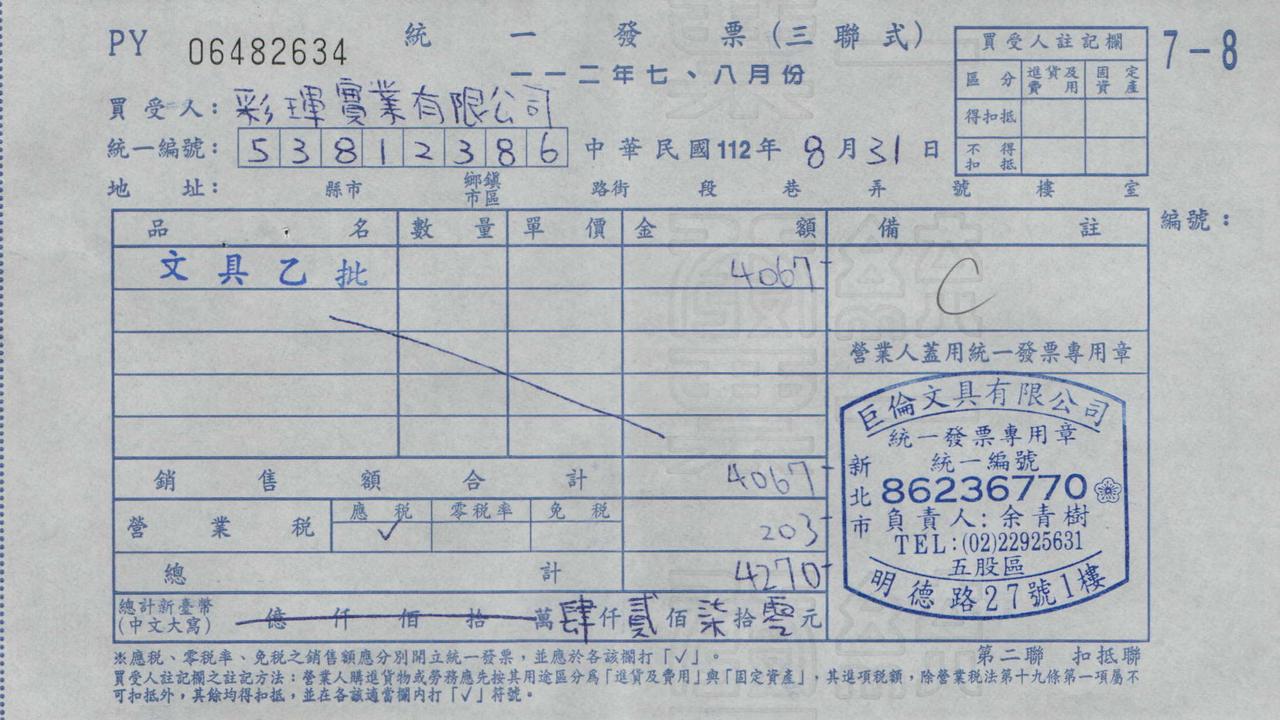 PY 06482634 統一發票(三聯式)
一一二年七、八月份
7-8
買受人註記欄
區分 進貨及費用 固定資產
得扣抵
不得扣抵
買受人:彩琿實業有限公司
統一編號:53812386 中華民國112年8月31日
地址: 縣市 鄉鎮市區 路街 段 巷 弄 號 樓 室
品名 數量 單價 金額 備註 編號:
文具乙批 4067 C
營業人蓋用統一發票專用章
銷售額合計 4067
營業稅 應稅 ✓ 零稅率 免稅 203
總計 4270
總計新臺幣(中文大寫) 億仟佰拾萬肆仟貳佰柒拾零元
巨倫文具有限公司
統一發票專用章
統一編號
86236770
負責人:余青樹
TEL:(02)22925631
新北市五股區
明德路27號1樓
※應稅、零稅率、免稅之銷售額應分別開立統一發票,並應於各該欄打「✓」。
第二聯 扣抵聯
買受人註記欄之註記方法:營業人購進貨物或勞務應先按其用途區分為「進貨及費用」與「固定資產」,其進項稅額,除營業稅法第十九條第一項屬不
可扣抵外,其餘均得扣抵,並在各該適當欄內打「✓」符號。